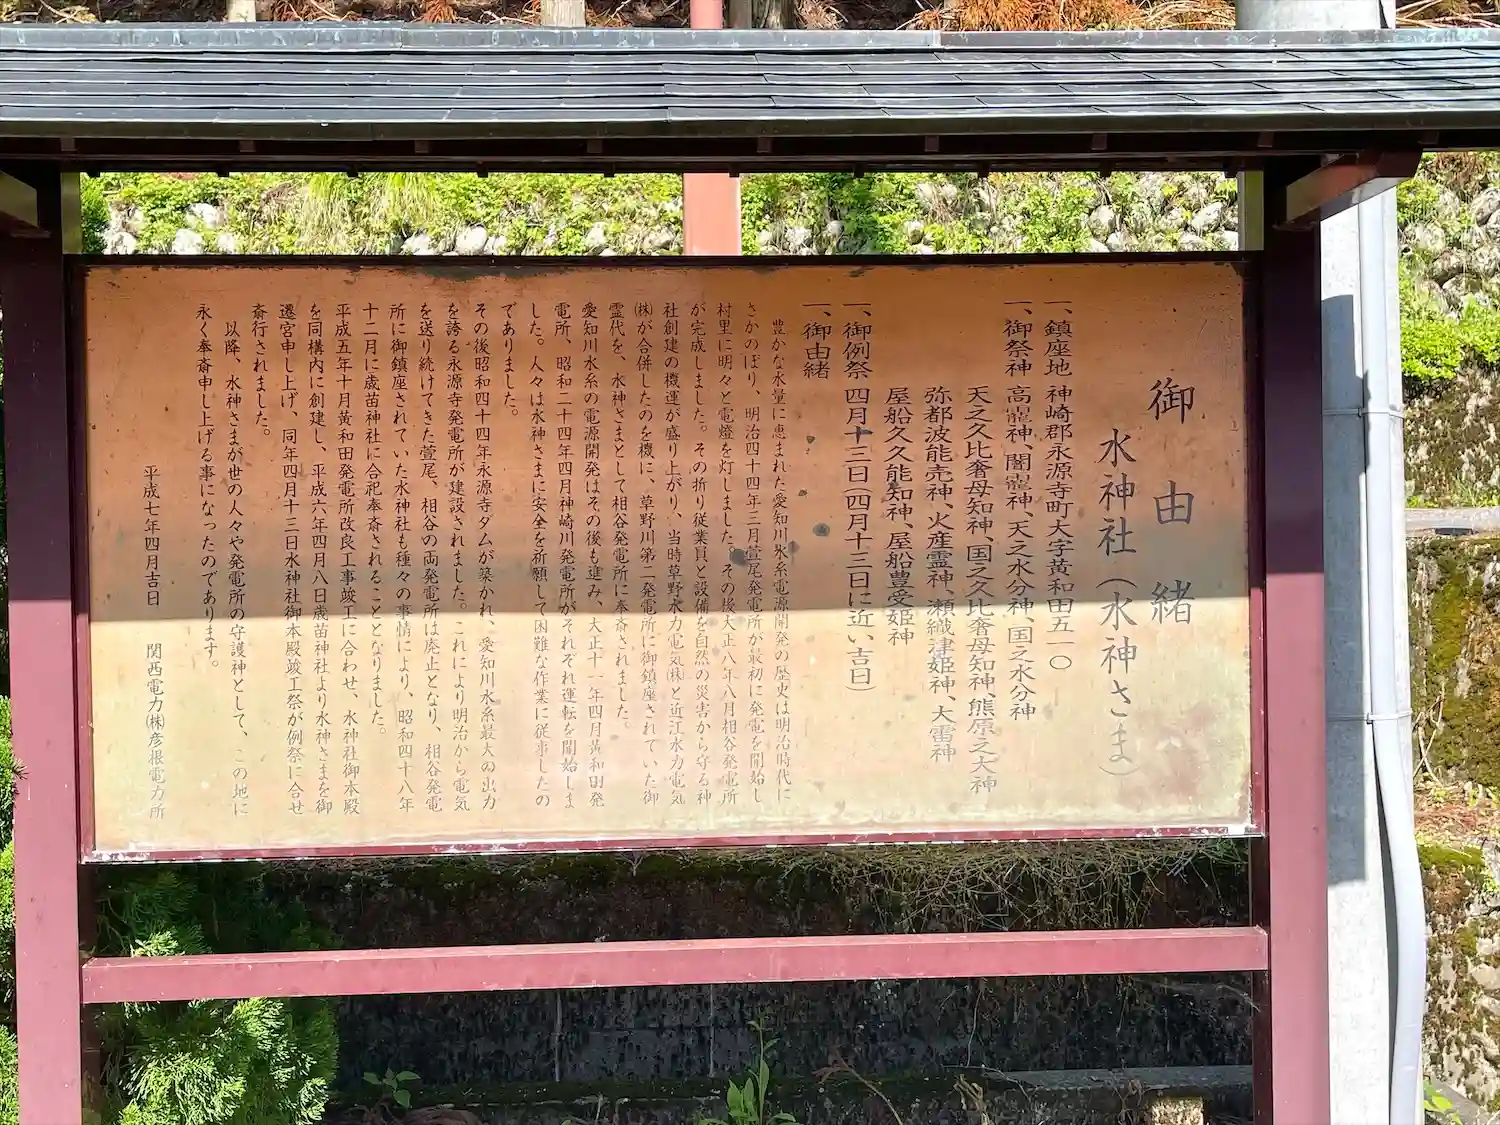 御由緒
水神社(水神さま)
一、鎮座地 神崎郡永源寺町大字黄和田五一〇
一、御祭神 高龗神、闇龗神、天之水分神、国之水分神
天之久比奢母知神、国之久比奢母知神、熊原之大神
弥都波能売神、火産霊神、瀬織津姫神、大雷神
屋船久久能知神、屋船豊受姫神
一、御例祭 四月十三日(四月十三日に近い吉日)
一、御由緒
豊かな水量に恵まれた愛知川水系電源開発の歴史は明治時代に
さかのぼり、明治四十四年三月萱尾発電所が最初に発電を開始し
村里に明々と電燈を灯しました。その後大正八年八月相谷発電所
が完成しました。その折り従業員と設備を自然の災害から守る神
社創建の機運が盛り上がり、当時草野水力電気㈱と近江水力電気
㈱が合併したのを機に、草野川第二発電所に御鎮座されていた御
霊代を、水神さまとして相谷発電所に奉斎されました。
愛知川水系の電源開発はその後も進み、大正十一年四月黄和田発
電所、昭和二十四年四月神崎川発電所がそれぞれ運転を開始しま
した。人々は水神さまに安全を祈願して困難な作業に従事したの
でありました。
その後昭和四十四年永源寺ダムが築かれ、愛知川水系最大の出力
を誇る永源寺発電所が建設されました。これにより明治から電気
を送り続けてきた萱尾、相谷の両発電所は廃止となり、相谷発電
所に御鎮座されていた水神社も種々の事情により、昭和四十八年
十二月に歳苗神社に合祀奉斎されることとなりました。
平成五年十月黄和田発電所改良工事竣工に合わせ、水神社御本殿
を同構内に創建し、平成六年四月八日歳苗神社より水神さまを御
遷宮申し上げ、同年四月十三日水神社御本殿竣工祭が例祭に合せ
斎行されました。
以降、水神さまが世の人々や発電所の守護神として、この地に
永く奉斎申し上げる事になったのであります。
平成七年四月吉日 関西電力㈱彦根電力所